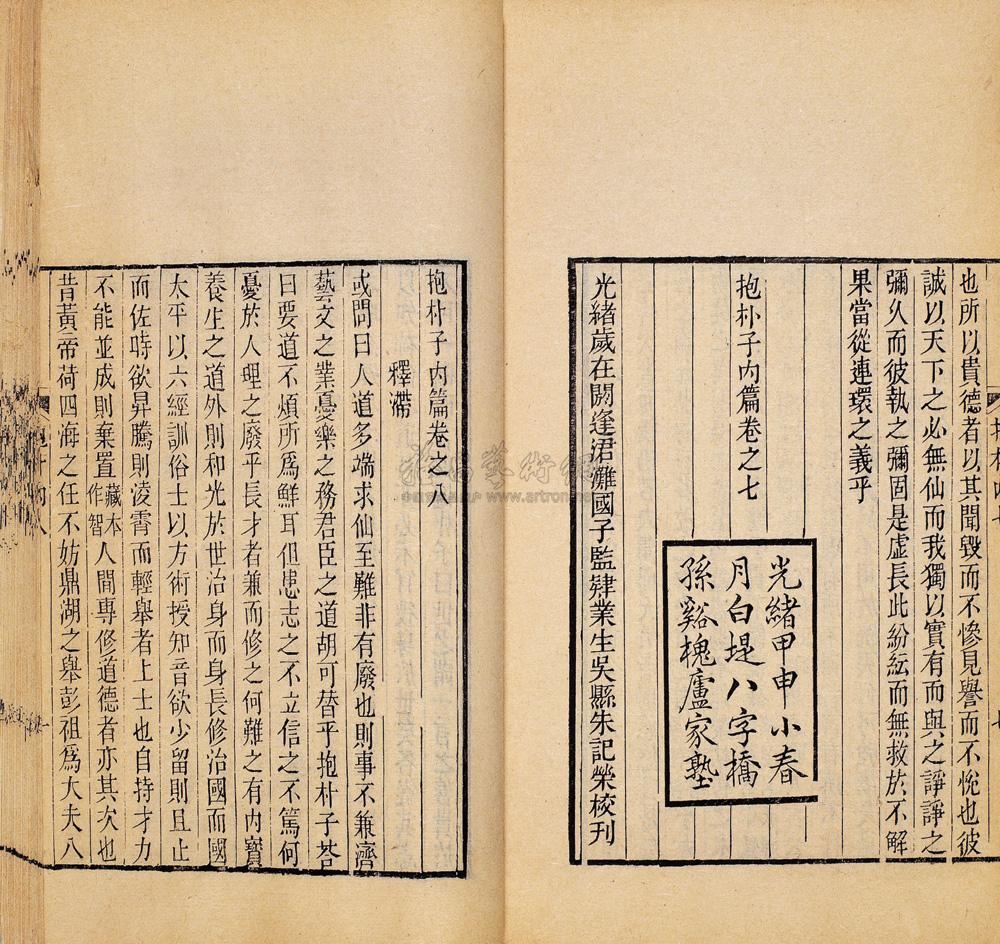 也所以貴德者以其聞毀而不慘見譽而不悅也彼
誠以天下之必無仙而我獨以實有而與之諍諍之
彌久而彼執之彌固是虛長此紛紜而無救於不解
果當從連環之義乎
抱朴子內篇卷之七
光緒甲申小春
月白堤八字橋
孫谿槐廬家塾
光緒歲在閼逢涒灘國子監肄業生吳縣朱記榮校刊
抱朴子內篇卷之八
釋滯
或問曰人道多端求仙至難非有廢也則事不兼濟
藝文之業憂樂之務君臣之道胡可替乎抱朴子荅
曰要道不煩所爲鮮耳但患志之不立信之不篤何
憂於人理之廢乎長才者兼而修之何難之有內寶
養生之道外則和光於世治身而身長修治國而國
太平以六經訓俗士以方術授知音欲少留則且止
而佐時欲昇騰則凌霄而輕舉者上士也自持才力
不能並成則棄置藏本作智人間專修道德者亦其次也
昔黃帝荷四海之任不妨鼎湖之舉彭祖爲大夫八
www.artron.net